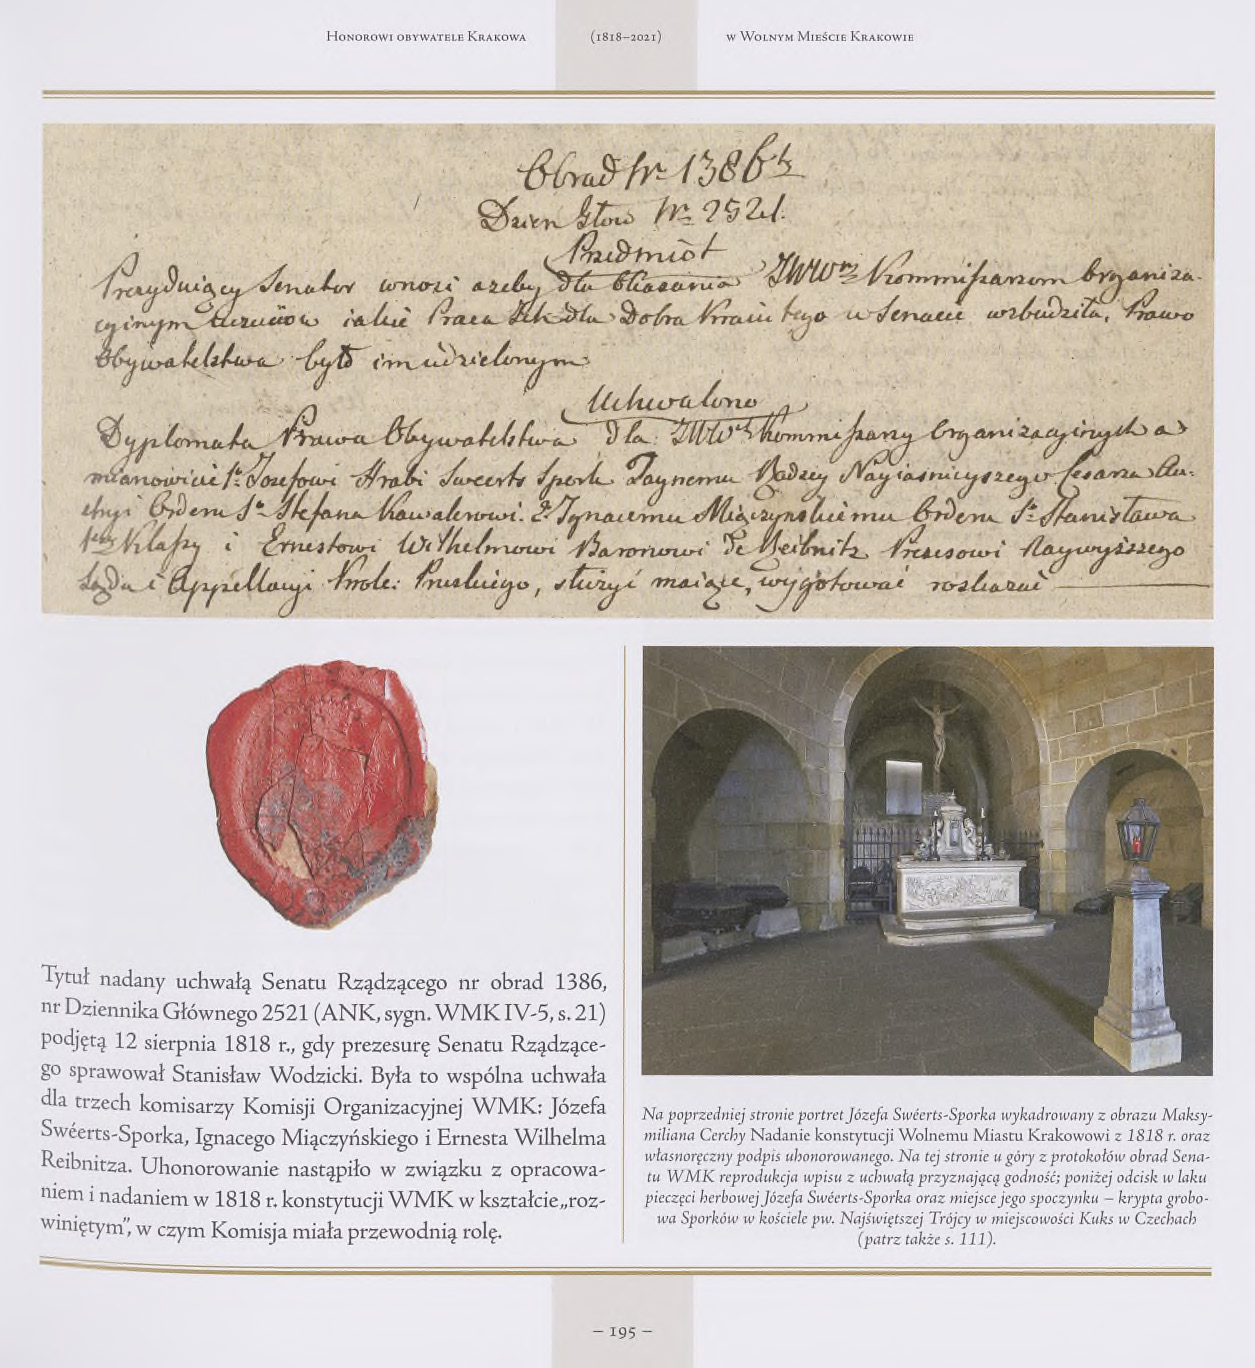 Honorowi obywatele Krakowa (1818–2021) w Wolnym Mieście Krakowie
Obrad Nr 1386
Dzien Głow Nr 2521.
Przedmiot
Prezyduiący Senator wnosi azeby dla Okazania JWWm Kommissarzom Organiza-
cyinym uczuciow iakie Praca Ich dla Dobra Kraiu tego w Senacie wzbudziła, Prawo
Obywatelstwa było im udzielonym
Uchwalono
Dyplomata Prawa Obywatelstwa dla JWW Kommissarzy Organizacyinych a
mianowicie 1. Jozefowi Hrabi Sweerts Spork Taynemu Radzcy Nayiasnieyszego Cesarza Au-
stryi Orderu St. Stefana Kawalerowi. 2. Ignacemu Miączynskiemu Orderu St. Stanisława
Klassy i Ernestowi Wilhelmowi Baronowi de Reibnitz Prezesowi Naywyższego
Sądu i Appellacyi Krole: Pruskiego, służyć maiące, wygotować rozkazać
Tytuł nadany uchwałą Senatu Rządzącego nr obrad 1386,
nr Dziennika Głównego 2521 (ANK, sygn. WMK IV-5, s. 21)
podjętą 12 sierpnia 1818 r., gdy prezesurę Senatu Rządzące-
go sprawował Stanisław Wodzicki. Była to wspólna uchwała
dla trzech komisarzy Komisji Organizacyjnej WMK: Józefa
Swéerts-Sporka, Ignacego Miączyńskiego i Ernesta Wilhelma
Reibnitza. Uhonorowanie nastąpiło w związku z opracowa-
niem i nadaniem w 1818 r. konstytucji WMK w kształcie „roz-
winiętym”, w czym Komisja miała przewodnią rolę.
Na poprzedniej stronie portret Józefa Swéerts-Sporka wykadrowany z obrazu Maksy-
miliana Cerchy Nadanie konstytucji Wolnemu Miastu Krakowowi z 1818 r. oraz
własnoręczny podpis uhonorowanego. Na tej stronie u góry z protokołów obrad Sena-
tu WMK reprodukcja wpisu z uchwałą przyznającą godność; poniżej odcisk w laku
pieczęci herbowej Józefa Swéerts-Sporka oraz miejsce jego spoczynku – krypta grobo-
wa Sporków w kościele pw. Najświętszej Trójcy w miejscowości Kuks w Czechach
(patrz także s. 111).
– 195 –